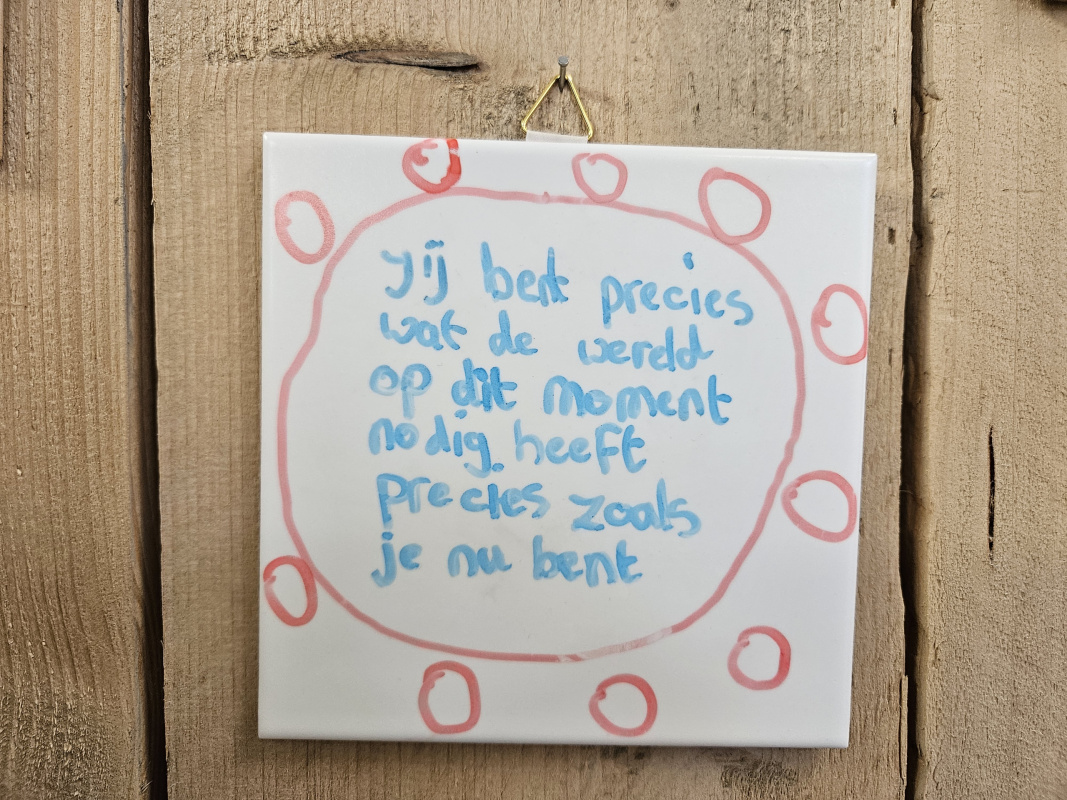 jij bent precies
wat de wereld
op dit moment
nodig heeft
precies zoals
je nu bent